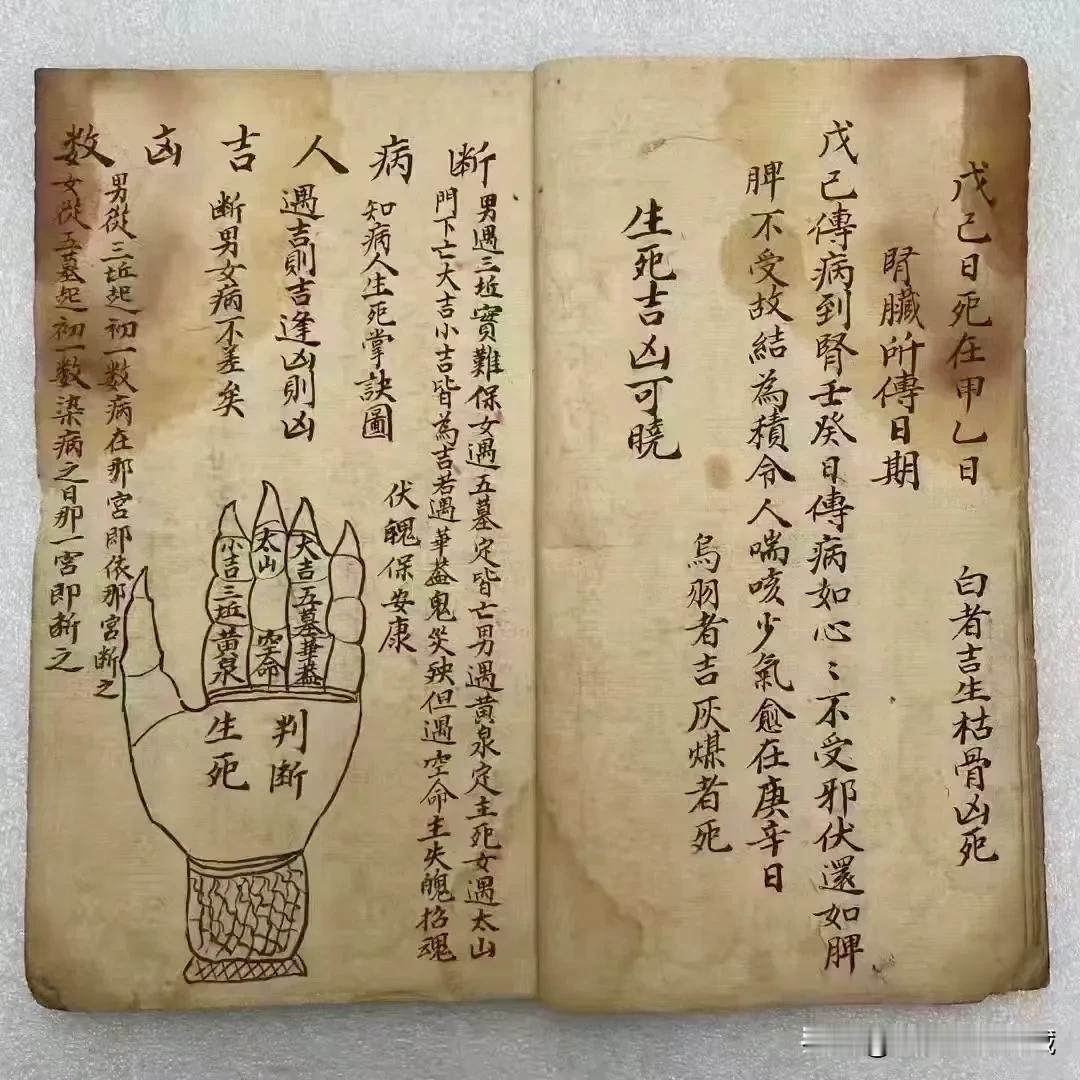 戊己日死在甲乙日
白者吉生枯骨凶死
腎臟所傳日期
戊己傳病到腎壬癸日傳病如心〻不受邪伏還如脾
脾不受故結為積令人喘咳少氣愈在庚辛日
烏羽者吉灰煤者死
生死吉凶可曉
断病人吉凶数
男遇三坵實難保女遇五墓定皆亡男遇黃泉定主死女遇太山
門下亡大吉小吉皆為吉若遇華蓋鬼災殃但遇空命主失魄招魂
伏魄保安康
知病人生死掌訣圖
遇吉則吉逢凶則凶
断男女病不差矣
男從三坵起初一数病在那宮即依那宮断之
女從五墓起初一数染病之日那一宮即断之
大吉五墓華蓋
太山
空命
小吉三坵黃泉
判断
生死